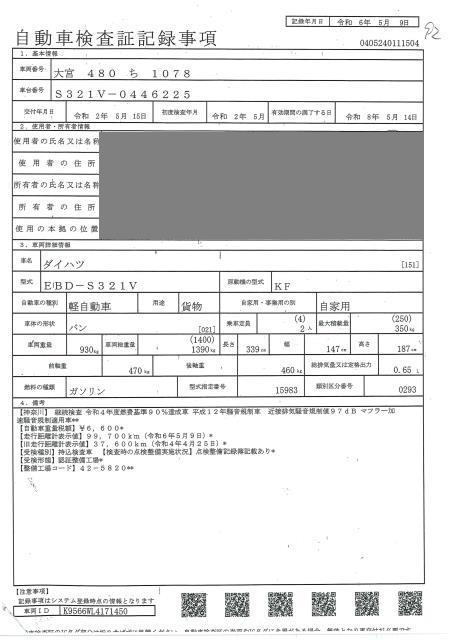 記録年月日 令和 6年 5月 9日
自動車検査証記録事項
0405240111504
1．基本情報
車両番号 大宮 480 ち 1078
車台番号 S321V-0446225
交付年月日 令和 2年 5月 15日 初度検査年月 令和 2年 5月 有効期間の満了する日 令和 8年 5月 14日
2．使用者・所有者情報
使用者の氏名又は名称
使用者の住所
所有者の氏名又は名称
所有者の住所
使用の本拠の位置
3．車両詳細情報
車名 ダイハツ [151]
型式 EBD-S321V 原動機の型式 KF
自動車の種別 軽自動車 用途 貨物 自家用・事業用の別 自家用
車体の形状 バン [021] 乗車定員 (4) 2人 最大積載量 (250) 350kg
車両重量 930kg 車両総重量 (1400) 1390kg 長さ 339cm 幅 147cm 高さ 187cm
前軸重 470kg 後軸重 460kg 総排気量又は定格出力 0.65 L
燃料の種類 ガソリン 型式指定番号 15983 類別区分番号 0293
4．備考
【神奈川】 継続検査 令和4年度燃費基準90%達成車 平成12年騒音規制車 近接排気騒音規制値97dB マフラー加
速騒音規制適用車**
【自動車重量税額】¥6,600*
【走行距離計表示値】99,700km（令和6年5月9日）*
【旧走行距離計表示値】37,600km（令和4年4月25日）*
【受検種別】持込検査車 【検査時の点検整備実施状況】点検整備記録簿記載あり*
【受検形態】認証整備工場*
【整備工場コード】42-5820**
【注意事項】
記録事項はシステム登録時点の情報となります
車両ID K9566WL4171450